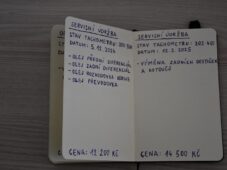 SERVISNÍ ÚDRŽBA
STAV TACHOMETRU:
DATUM: 5. 12. 2024
- OLEJ PŘEDNÍ DIFERENCIÁL
- OLEJ ZADNÍ DIFERENCIÁL
- OLEJ ROZVODOVKA
- OLEJ PŘEVODOVKA
CENA: 12 200 KČ
SERVISNÍ ÚDRŽBA
STAV TACHOMETRU: 202
DATUM: 2. 2025
- VÝMĚNA ZADNÍCH DESTIČEK
A KOTOUČŮ
CENA: 14 500 KČ